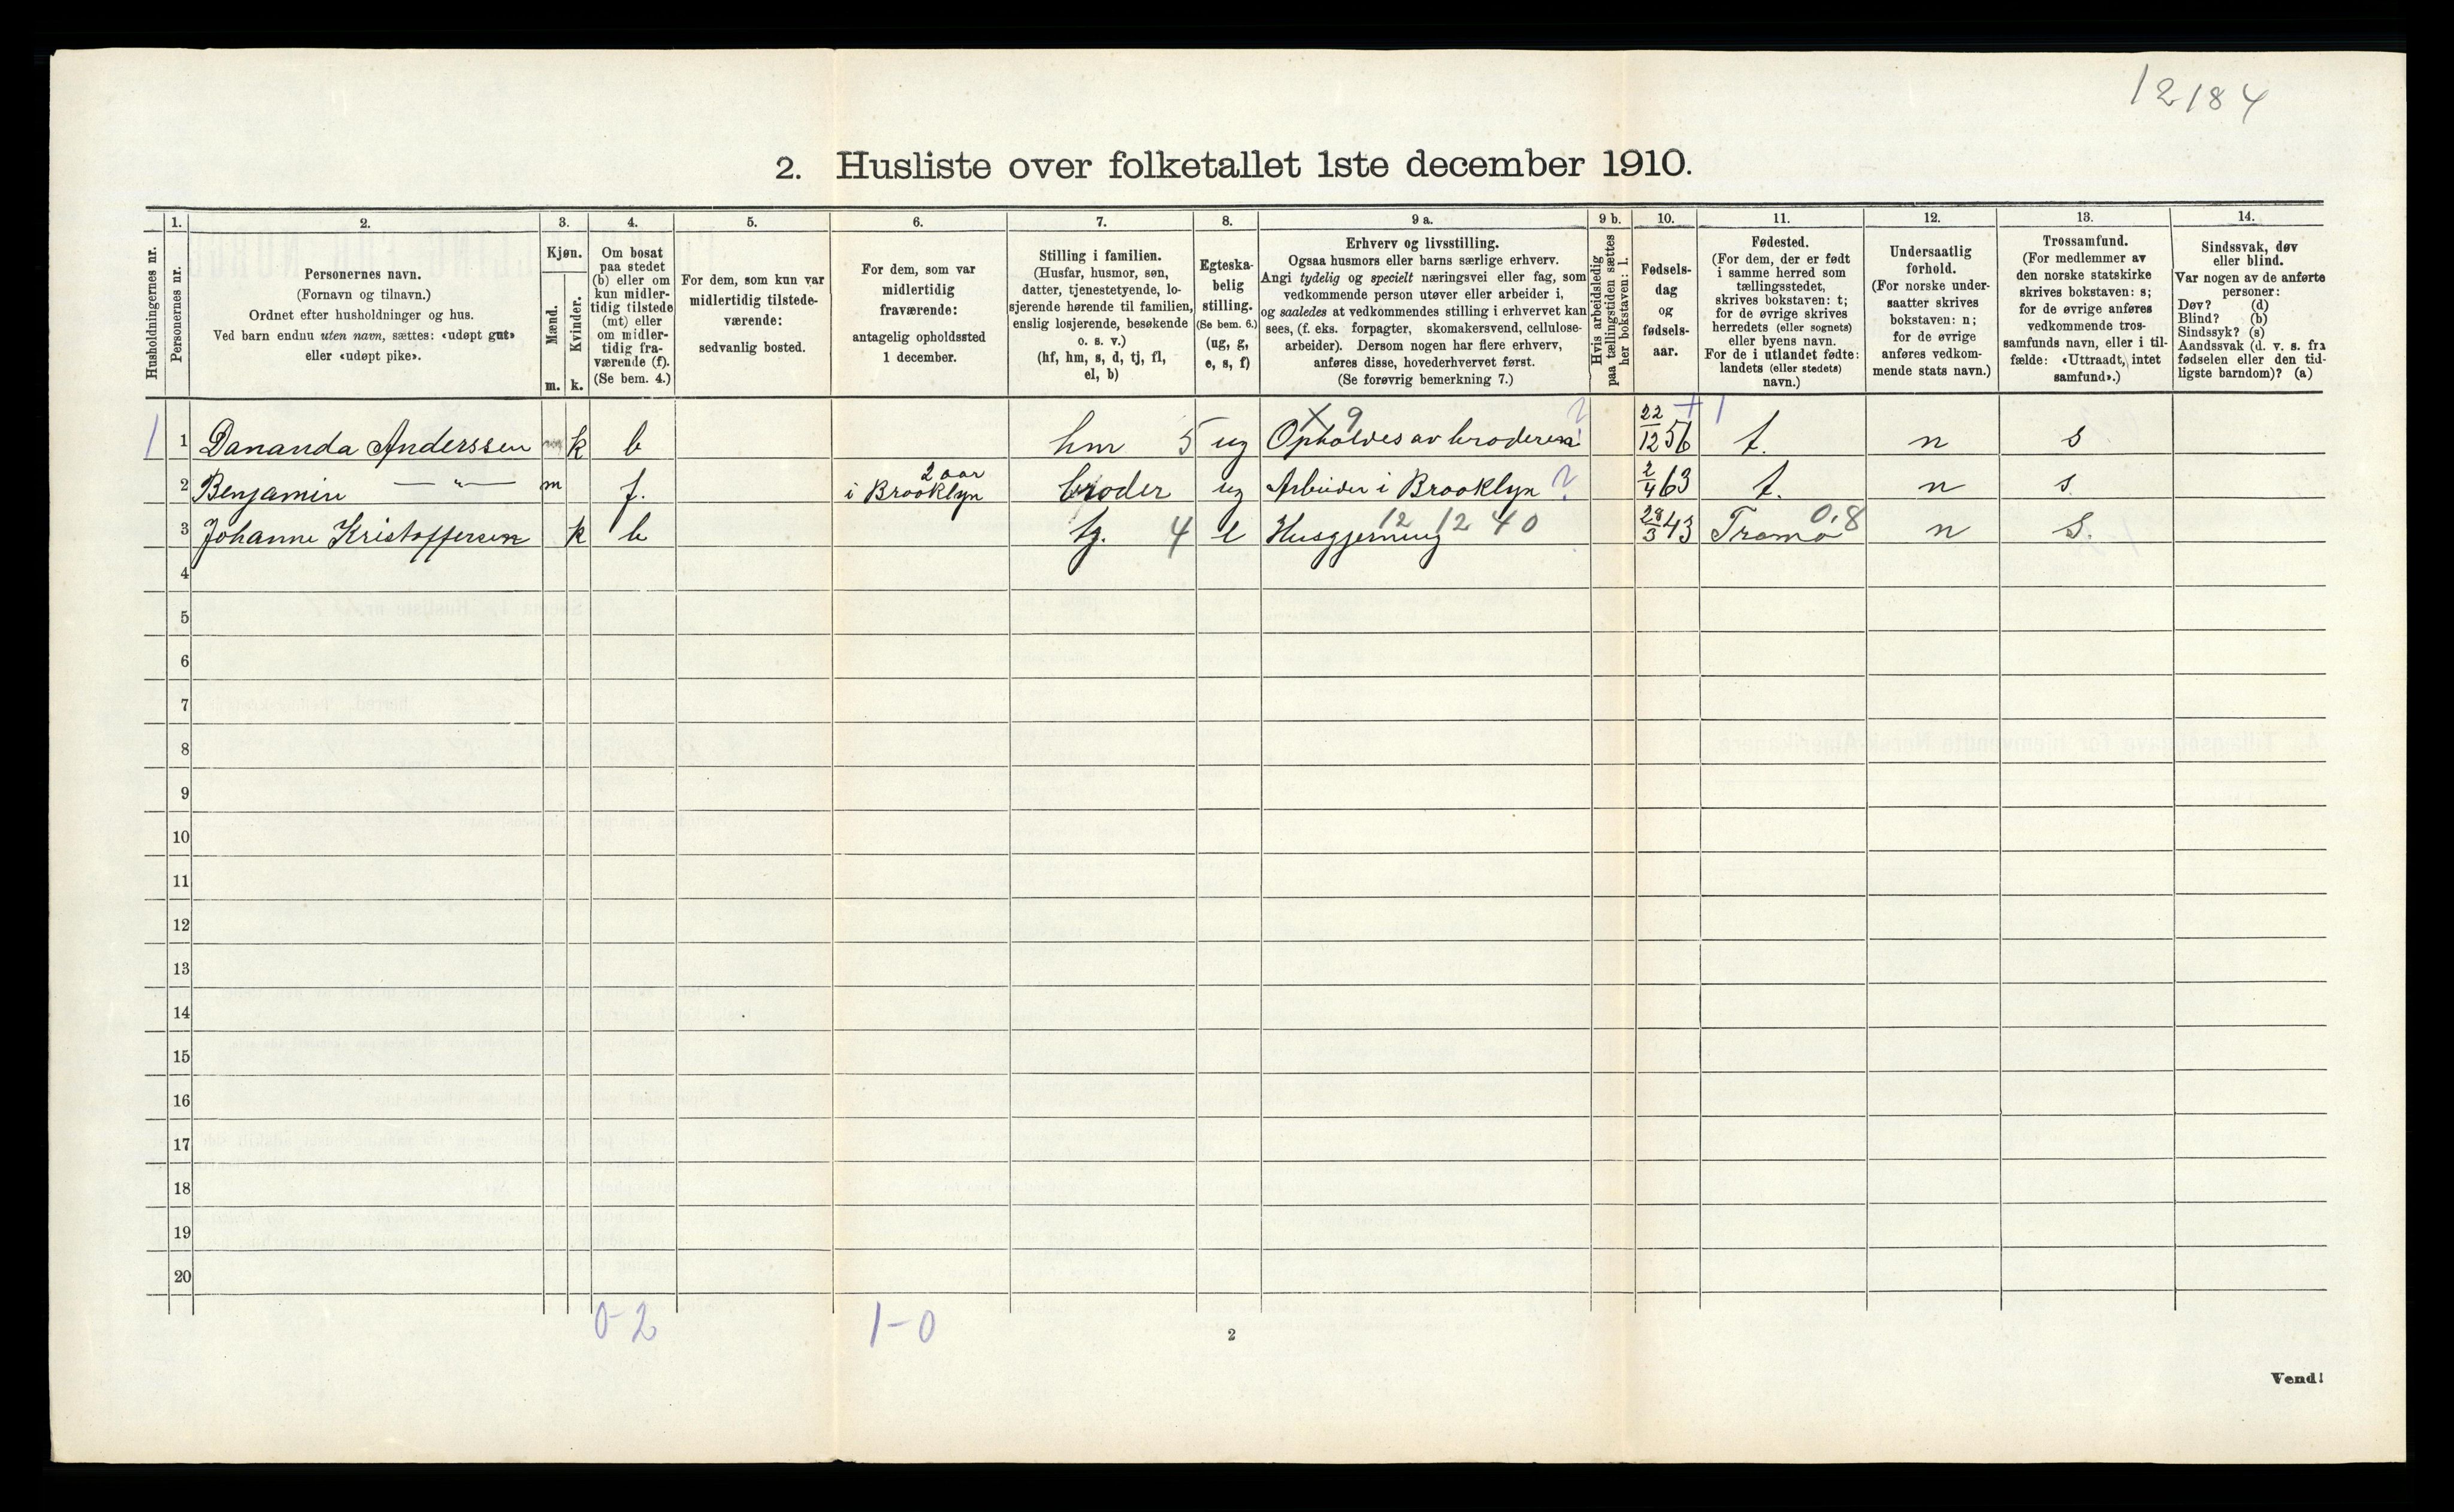 12184
2. Husliste over folketallet 1ste december 1910.
Husholdningernes nr.
1.
Personernes nr.
2.
Personernes navn.
(Fornavn og tilnavn.)
Ordnet efter husholdninger og hus.
Ved barn endnu uten navn, sættes: «udøpt gut»
eller «udøpt pike».
3.
Kjøn.
Mænd.
Kvinder.
m. k.
4.
Om bosat
paa stedet
(b) eller om
kun midler-
tidig tilstede
(mt) eller
om midler-
tidig fra-
værende (f).
(Se bem. 4.)
5.
For dem, som kun var
midlertidig tilstede-
værende:
sedvanlig bosted.
6.
For dem, som var
midlertidig
fraværende:
antagelig opholdssted
1 december.
7.
Stilling i familien.
(Husfar, husmor, søn,
datter, tjenestetyende, lo-
sjerende hørende til familien,
enslig losjerende, besøkende
o. s. v.)
(hf, hm, s, d, tj, fl,
el, b)
8.
Egteska-
belig
stilling.
(Se bem. 6.)
(ug, g,
e, s, f)
9 a.
Erhverv og livsstilling.
Ogsaa husmors eller barns særlige erhverv.
Angi tydelig og specielt næringsvei eller fag, som
vedkommende person utøver eller arbeider i,
og saaledes at vedkommendes stilling i erhvervet kan
sees, (f. eks. forpagter, skomakersvend, cellulose-
arbeider). Dersom nogen har flere erhverv,
anføres disse, hovederhvervet først.
(Se forøvrig bemerkning 7.)
9 b.
Hvis arbeidsledig
paa tællingstiden sættes
her bokstaven: l.
10.
Fødsels-
dag
og
fødsels-
aar.
11.
Fødested.
(For dem, der er født
i samme herred som
tællingsstedet,
skrives bokstaven: t;
for de øvrige skrives
herredets (eller sognets)
eller byens navn.
For de i utlandet fødte:
landets (eller stedets)
navn.)
12.
Undersaatlig
forhold.
(For norske under-
saatter skrives
bokstaven: n;
for de øvrige
anføres vedkom-
mende stats navn.)
13.
Trossamfund.
(For medlemmer av
den norske statskirke
skrives bokstaven: s;
for de øvrige anføres
vedkommende tros-
samfunds navn, eller i til-
fælde: «Uttraadt, intet
samfund».)
14.
Sindssvak, døv
eller blind.
Var nogen av de anførte
personer:
Døv? (d)
Blind? (b)
Sindssyk? (s)
Aandssvak (d. v. s. fra
fødselen eller den tid-
ligste barndom)? (a)
X 9 ? + 1
1 1 Dananda Anderssen k b hm 5 ug Opholdes av broderen 22/12 56 t. n s
2 Benjamin —"— m f. i Brooklyn 2 aar broder ug Arbeider i Brooklyn ? 2/4 63 t. n s
3 Johanne Kristoffersen k b tj. 4 e Husgjerning 12 12 40 28/3 43 Tromø 0.8 n s.
4
5
6
7
8
9
10
11
12
13
14
15
16
17
18
19
20
0-2 1-0
2
Vend!